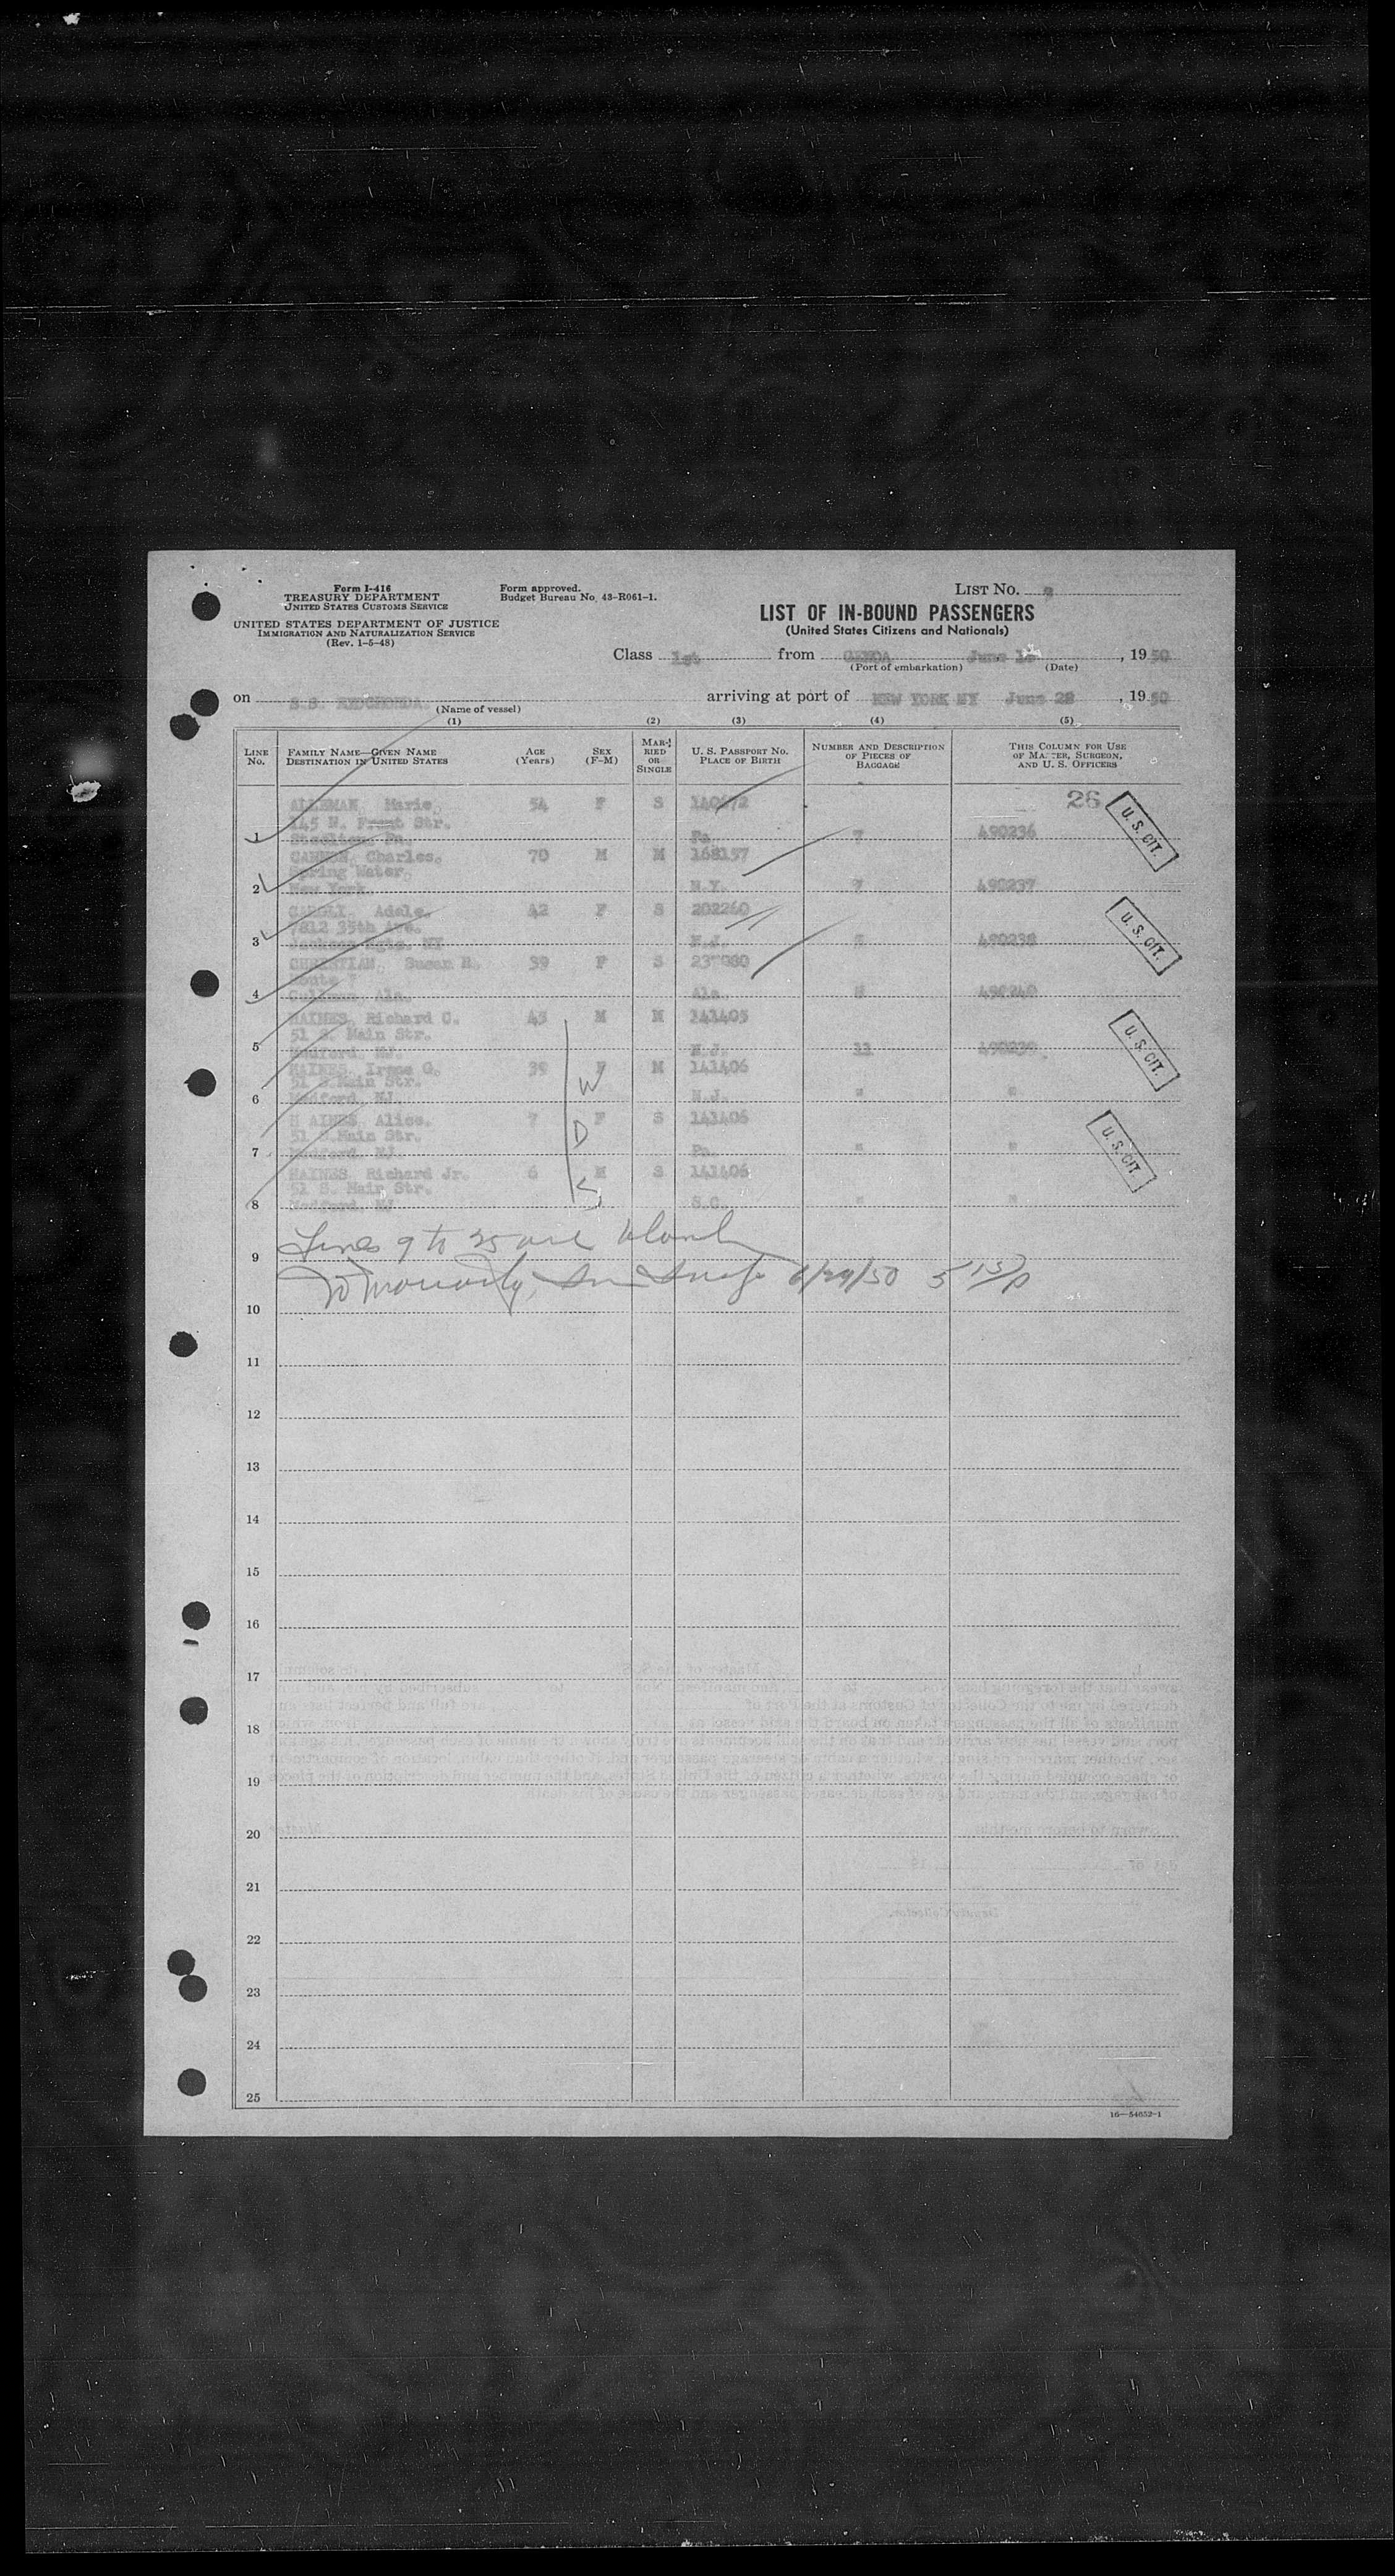 Form I-416
TREASURY DEPARTMENT
UNITED STATES CUSTOMS SERVICE
UNITED STATES DEPARTMENT OF JUSTICE
IMMIGRATION AND NATURALIZATION SERVICE
(Rev. 1-5-48)
Form approved.
Budget Bureau No. 43-R061-1.
LIST NO.
LIST OF IN-BOUND PASSENGERS
(United States Citizens and Nationals)
Class 1st from GENOA June , 19 50
(Port of embarkation) (Date)
on S.S. arriving at port of NEW YORK NY June 28 , 19 50
(Name of vessel)
(1) (2) (3) (4) (5)
LINE No. FAMILY NAME—GIVEN NAME DESTINATION IN UNITED STATES AGE (Years) SEX (F-M) MARRIED OR SINGLE U. S. PASSPORT NO. PLACE OF BIRTH NUMBER AND DESCRIPTION OF PIECES OF BAGGAGE THIS COLUMN FOR USE OF MASTER, SURGEON, AND U. S. OFFICERS
26
Marie. 54 F S 140672
145 N. Front Str.
1 Pa. Pa. 7 490236
U. S. CIT.
CANNON, Charles. 70 M M 168157
Spring Water,
2 New York. N.Y. 7 490237
Adele. 42 F S 202260
7812 35th Ave.
3 NY N.J. 490238
U. S. CIT.
CHRISTIAN, Susan H. 39 F S
4 Ala. Ala. 490240
HAINES, Richard C. 45 M M 141405
51 S. Main Str.
5 Medford, NJ. N.J. 490239
U. S. CIT.
HAINES, Irene G. 39 F M 141406
51 S.Main Str.
6 Medford, NJ. N.J. " "
W
H AINES, Alice. 7 F S 141406
51 S.Main Str.
7 Medford, NJ. Pa. " "
D
U. S. CIT.
HAINES, Richard Jr. 6 M S 141406
51 S. Main Str.
8 Medford, NJ S.C. " "
S
Lines 9 to 25 are blank
9
6/29/50
10
11
12
13
14
15
16
17
18
19
20
21
22
23
24
25
16—54652-1